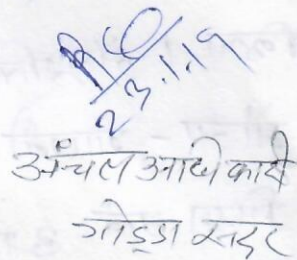 23.1.19
अंचल अधिकारी
गोड्डा सदर